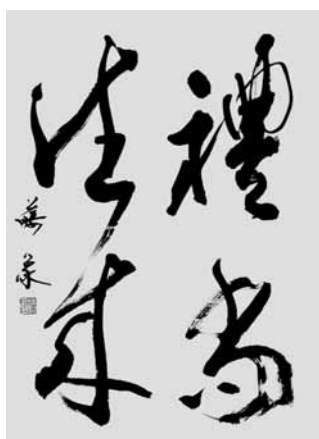 禮尚
往來